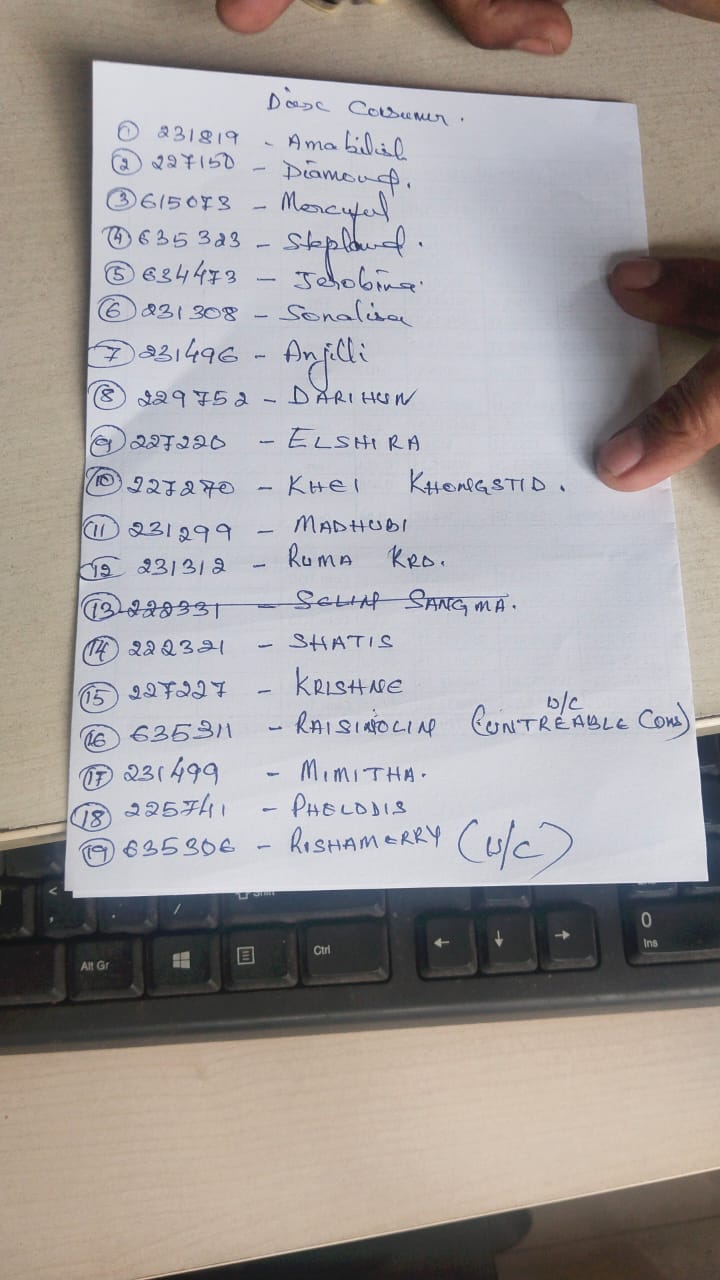 Disc Cosumer.
① 231819 - Amabilish
② 227150 - Diamond.
③ 615073 - Mercyful
④ 635323 - Stepland.
⑤ 634473 - Jerobina.
⑥ 231308 - Sonalisa
⑦ 231496 - Anjilli
⑧ 229752 - DARIHUN
⑨ 227220 - ELSHIRA
⑩ 227270 - KHEI KHONGSTID.
⑪ 231299 - MADHUBI
⑫ 231312 - RUMA KRO.
⑬ 222331 - SELIM SANGMA.
⑭ 222321 - SHATIS
⑮ 227227 - KRISHNE
⑯ 635311 - RAISINOLIM (UNTREABLE Cons) U/C
⑰ 231499 - MIMITHA.
⑱ 225741 - PHELODIS
⑲ 635306 - RISHAMERRY (U/C)
< , . / Shift
Alt Gr Ctrl ← ↓ → 0 Ins